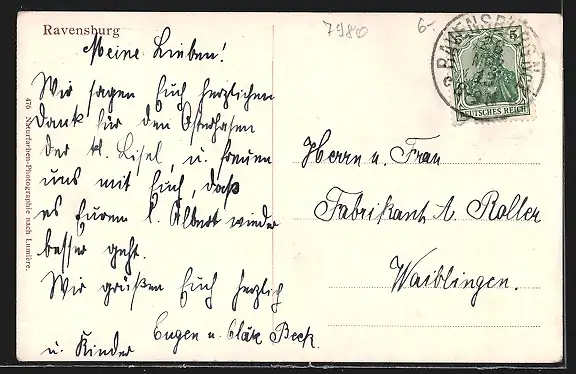 Ravensburg
7980
6-
RAVENSBURG
5
DEUTSCHES REICH
Meine Lieben!
Wir sagen Euch herzlichen
Dank für den Osterhasen
der kl. Lisel, u. freuen
uns mit Euch, daß
es Eurem l. Albert wieder
besser geht.
Wir grüßen Euch herzlich
Eugen u. Beck
u. Kinder
Herrn u. Frau
Fabrikant A. Roller
Waiblingen.
476 Naturfarben-Photographie nach Lumière.